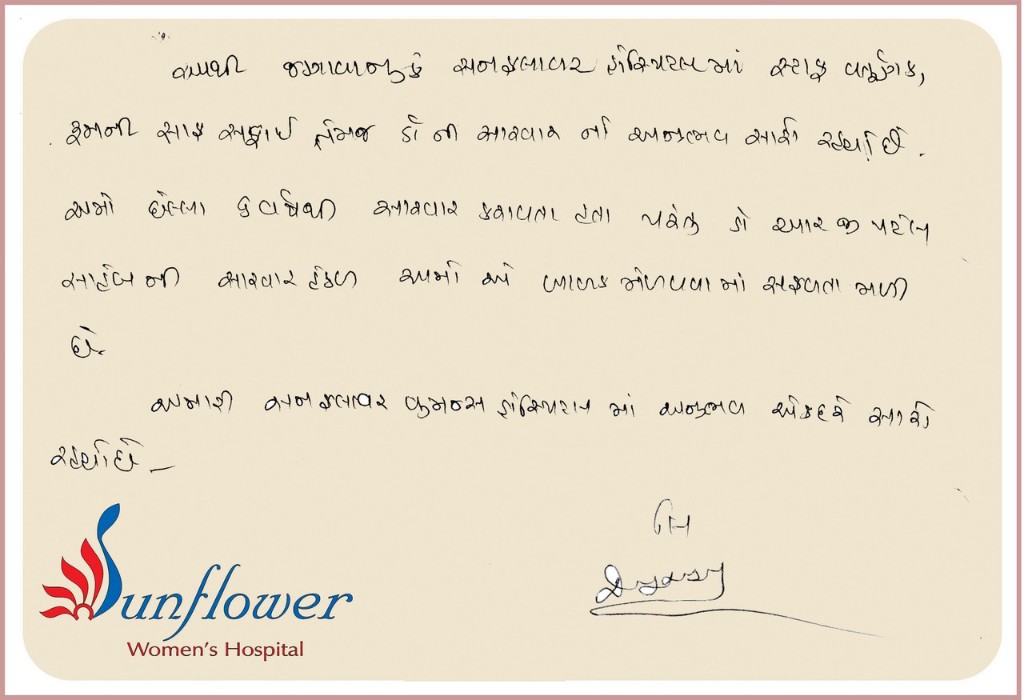 આથી જણાવાનું કે સનફલાવર હોસ્પિટલમાં સ્ટાફ વર્તુણક,
રૂમની સાફ સફાઈ તેમજ ડૉ ની સારવાર નો અનુભવ સારો રહ્યો છે.
અમો છેલ્લા ૬ વર્ષથી સારવાર કરાવતા હતા પરંતુ ડૉ આર જી પટેલ
સાહેબ ની સારવાર હેઠળ અમો એ બાળક મેળવવા માં સફળતા મળી
છે.
અમારી સનફલાવર વુમન્સ હોસ્પિટલ માં અનુભવ એકદરે સારો
રહ્યો છે –
લિ
Sunflower
Women's Hospital